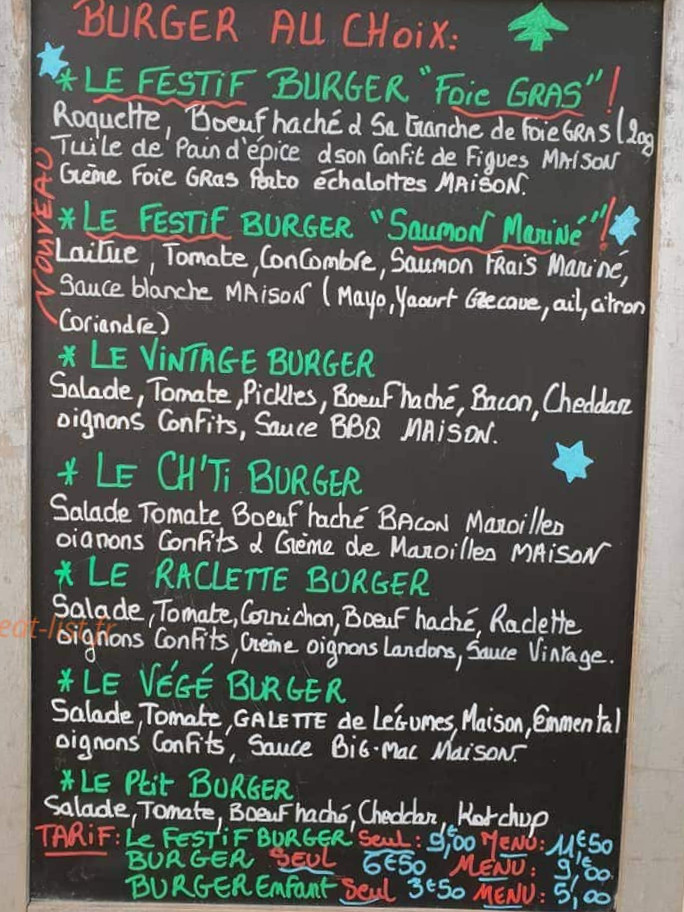 BURGER AU CHOIX:
* LE FESTIF BURGER "Foie GRAS"!
Roquette, Boeuf haché & Sa tranche de foie GRAS (20g
Tuile de Pain d'épice & son Confit de Figues MAISON
Crème Foie GRas Porto échalottes MAISON.
NOUVEAU
* LE FESTIF BURGER "Saumon Mariné"!
Laitue, Tomate, ConCombre, Saumon FRais Mariné,
Sauce blanche MAISON (Mayo, Yaourt Grecque, ail, citron
Coriandre)
* LE VINTAGE BURGER
Salade, Tomate, Pickles, Boeuf haché, Bacon, Cheddar
oignons Confits, Sauce BBQ MAISON.
* LE CH'Ti BURGER
Salade Tomate Boeuf haché BACON Maroilles
oignons Confits & Crème de Maroilles MAISON
* LE RACLETTE BURGER
Salade, Tomate, Cornichon, Boeuf haché, Raclette
oignons Confits, Crème oignons Lardons, Sauce Vintage.
eat-list.fr
* LE VÉGÉ BURGER
Salade, Tomate, GALETTE de LéGumes, Maison, Emmental
oignons Confits, Sauce BiG-Mac Maison.
* LE Ptit BURGER
Salade, Tomate, Boeuf haché, Cheddar, Ketchup
TARIF: Le FESTIF BURGER Seul: 9,€00 MENU: 11€50
BURGER SEUL 6€50 MENU: 9,€00
BURGER Enfant Seul 3€50 MENU: 5,00